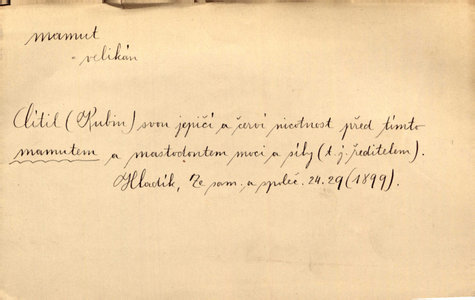 mamut
= velikán
Cítil (Kubín) svou jepičí a červí nicotnost před tímto
mamutem a mastodontem moci a síly (t. j. ředitelem).
Hladík, Ze sam. a společ. 24. 29 (1899).